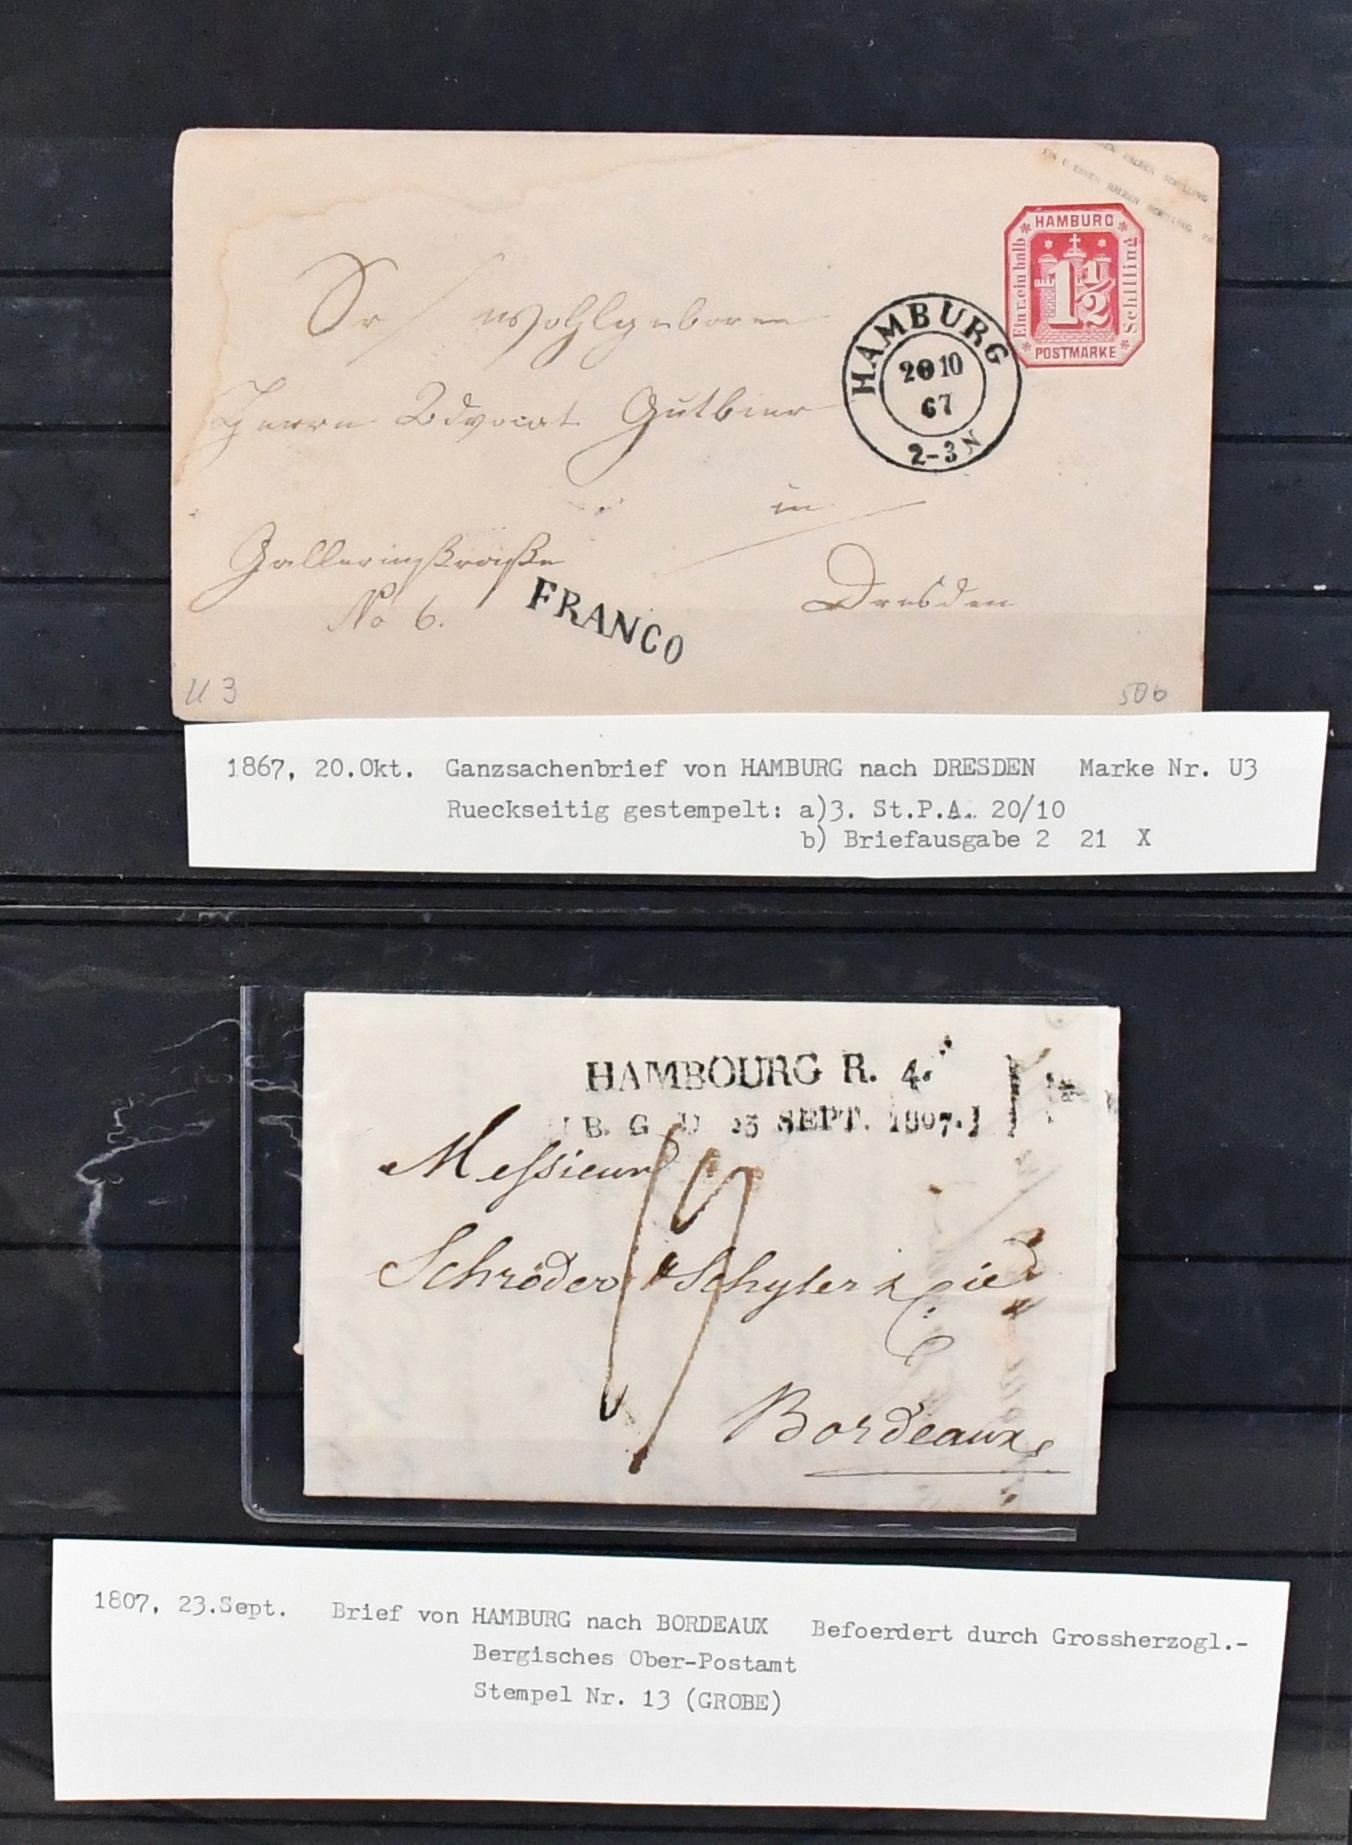 EIN U. EINEN HALBEN SCHILLING
HAMBURG
Einundeinhalb
1 1/2
Schilling
POSTMARKE
HAMBURG
20 10
67
2-3 N
Sr Wohlgeboren
Herrn Advocat Gutbier
in
Galleriestraße
Dresden
No 6.
FRANCO
U 3
506
1867, 20.Okt. Ganzsachenbrief von HAMBURG nach DRESDEN Marke Nr. U3
Rueckseitig gestempelt: a)3. St.P.A. 20/10
b) Briefausgabe 2 21 X
HAMBOURG R. 4.
B. G. D 23 SEPT. 1807.
Messieurs
Schröder & Schyler & Cie
Bordeaux
1807, 23.Sept. Brief von HAMBURG nach BORDEAUX Befoerdert durch Grossherzogl.-
Bergisches Ober-Postamt
Stempel Nr. 13 (GROBE)